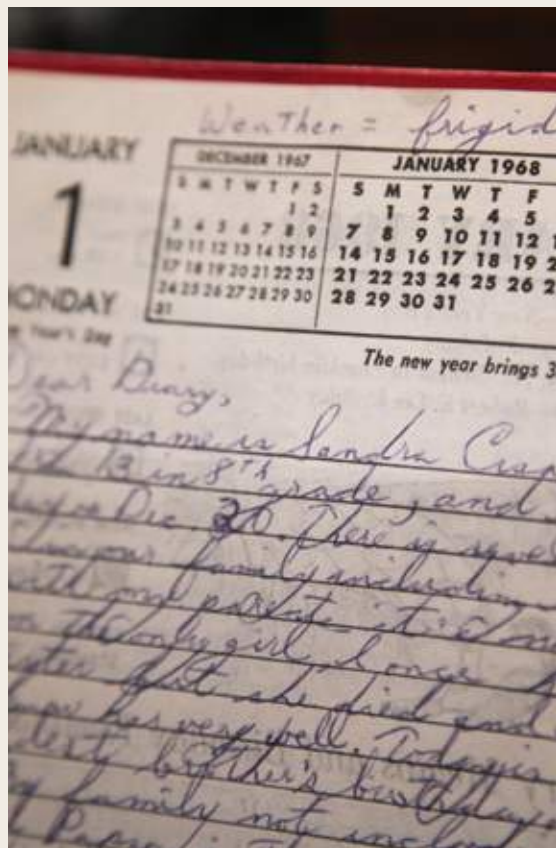 Weather = frigid
JANUARY
1
MONDAY
New Year's Day
DECEMBER 1967
S M T W T F S
1 2
3 4 5 6 7 8 9
10 11 12 13 14 15 16
17 18 19 20 21 22 23
24 25 26 27 28 29 30
31
JANUARY 1968
S M T W T F
1 2 3 4 5
7 8 9 10 11 12
14 15 16 17 18 19
21 22 23 24 25 26
28 29 30 31
The new year brings 3
Dear Diary,
My name is Sandra
13 in 8th grade, and
Dec. 20. There is
our family including
with my parents,
the only girl, I once
but she died and
her very well. Today is
brother's birthday
family not